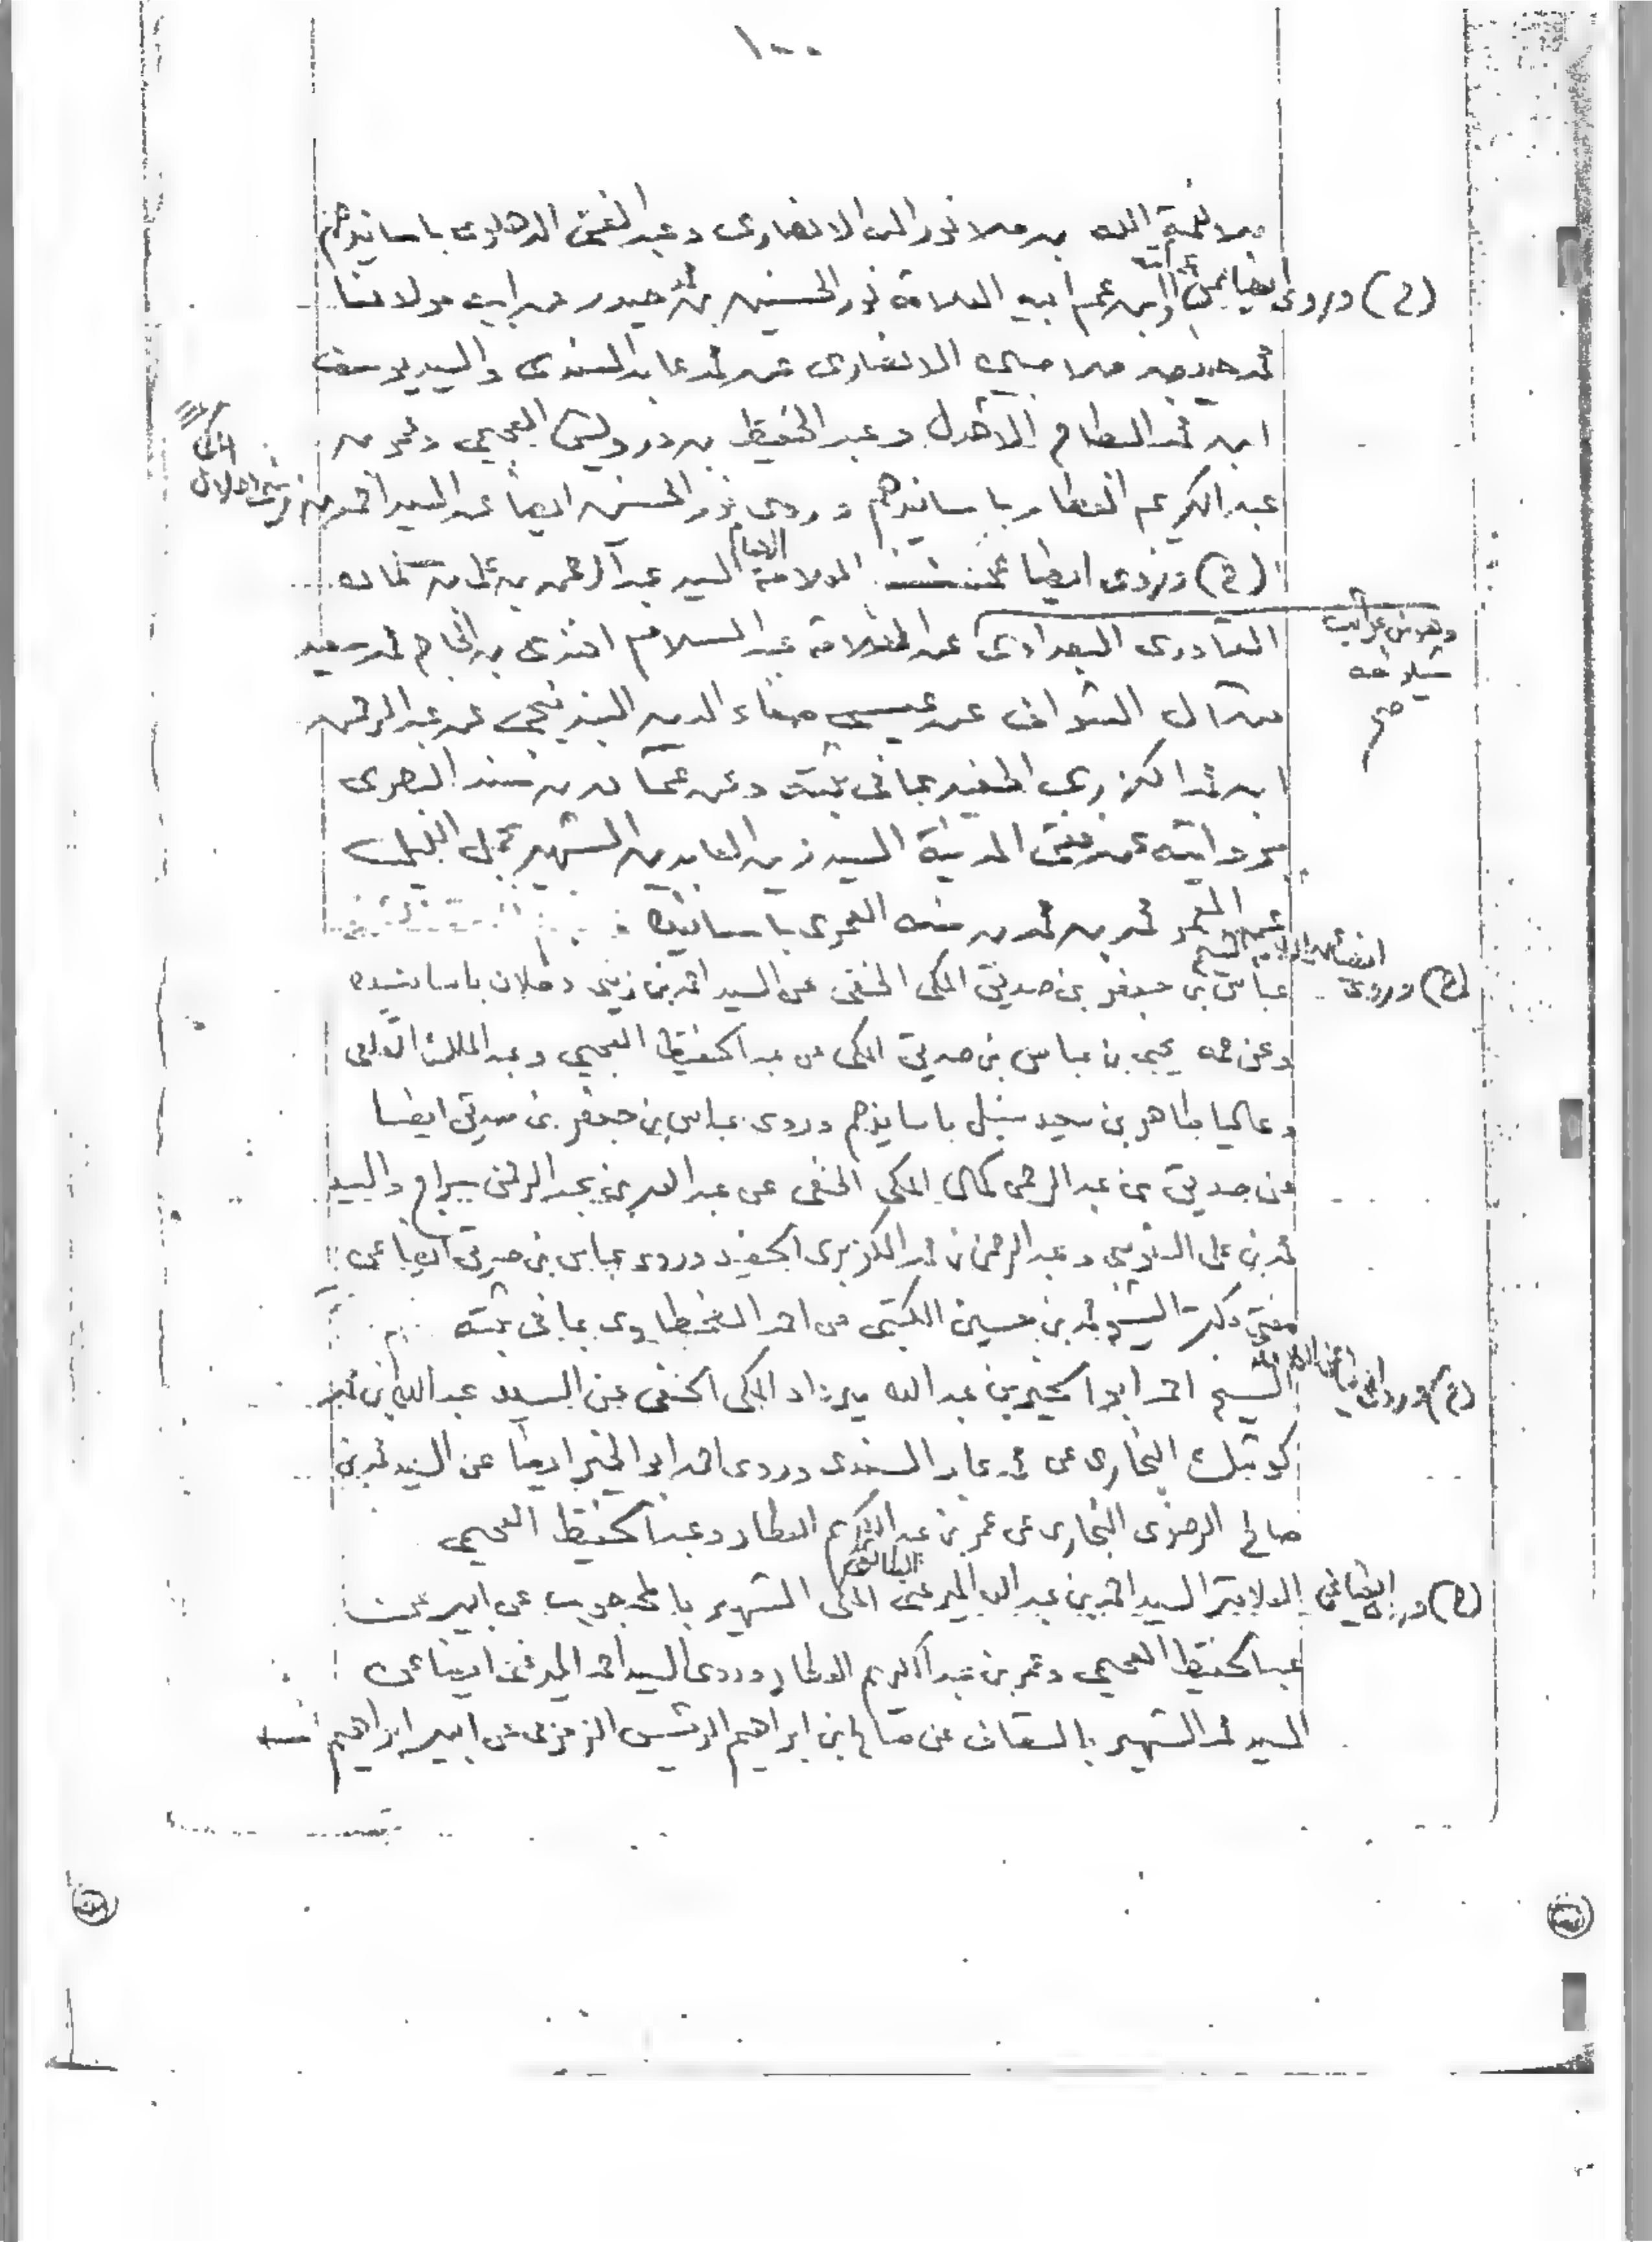 ١٠٠
ملا نعمة الله بن ملا نور الله الانصارى وعبد الغنى الدهلوى باسانيدهم
(ح) وروى ايضا عن ابن عم ابيه العلامة نور الحسنين بن محمد حيدر عن ابيه مولانا
محمد حيدر بن ملا مبين الانصارى عن محمد عابد السندى والسيد يوسف
ابن محمد البطاح الاهدل وعبد الحفيظ بن درويش العجيمى وعمر بن
عبد الكريم العطار باسانيدهم وروى نور الحسنين ايضا عن السيد احمد بن زينى دحلان
المكى
(ح) وروى ايضا عن العلامة الامام السيد عبد الرحمن بن على
القادرى البغدادى عن العلامة عبد السلام افندى بن الحاج محمد سعيد
وهو من غرائب
صح
من آل الشواف عن عيسى صفاء الدين البندنيجى عن عبد الرحمن
ابن محمد الكزبرى الحفيد بما فى ثبته وعن عثمان بن سند البصرى
بروايته عن مفتى المدينة السيد زين العابدين الشهير بجمل الليل
عن المعمر محمد بن محمد بن سنه العمرى باسانيده
(ح) وروى ايضا عن العلامة الشيخ
عباس بن جعفر بن صديق المكى الحنفى عن السيد احمد بن زينى دحلان باسانيده
وعن عمه يحيى بن عباس بن صديق المكى عن عبد الحفيظ العجيمى وعبد الملك القلعى
وعاليا طاهر بن سعيد سنبل باسانيدهم وروى عباس بن جعفر بن صديق ايضا
عن صديق بن عبد الرحمن كمال المكى الحنفى عن عبد الله بن عبد الرحمن سراج والسيد
محمد بن على السنوسى وعبد الرحمن بن محمد الكزبرى الحفيد وروى عباس بن صديق ايضا عن
مفتى مكة السيد محمد بن حسين الكتبى عن احمد الطحطاوى بما فى ثبته
(ح) وروى ايضا عن العلامة
الشيخ احمد ابو الخير بن عبد الله ميرداد المكى الحنفى عن السيد عبد الله بن محمد
كوجك البخارى عن محمد عابد السندى وروى احمد ابو الخير ايضا عن السيد محمد بن
صالح الرضوى البخارى عن عمر بن عبد الكريم العطار وعبد الحفيظ العجيمى
(ح) وروى ايضا عن العلامة السيد احمد بن عبد الله الميرغنى المكى الطائفى الشهير بالمحجوب عن ابيه عن
عبد الحفيظ العجيمى وعمر بن عبد الكريم العطار وروى السيد احمد الميرغنى ايضا عن
السيد محمد الشهير بالسقاف عن صالح بن ابراهيم الرئيس الزمزمى عن ابيه ابراهيم